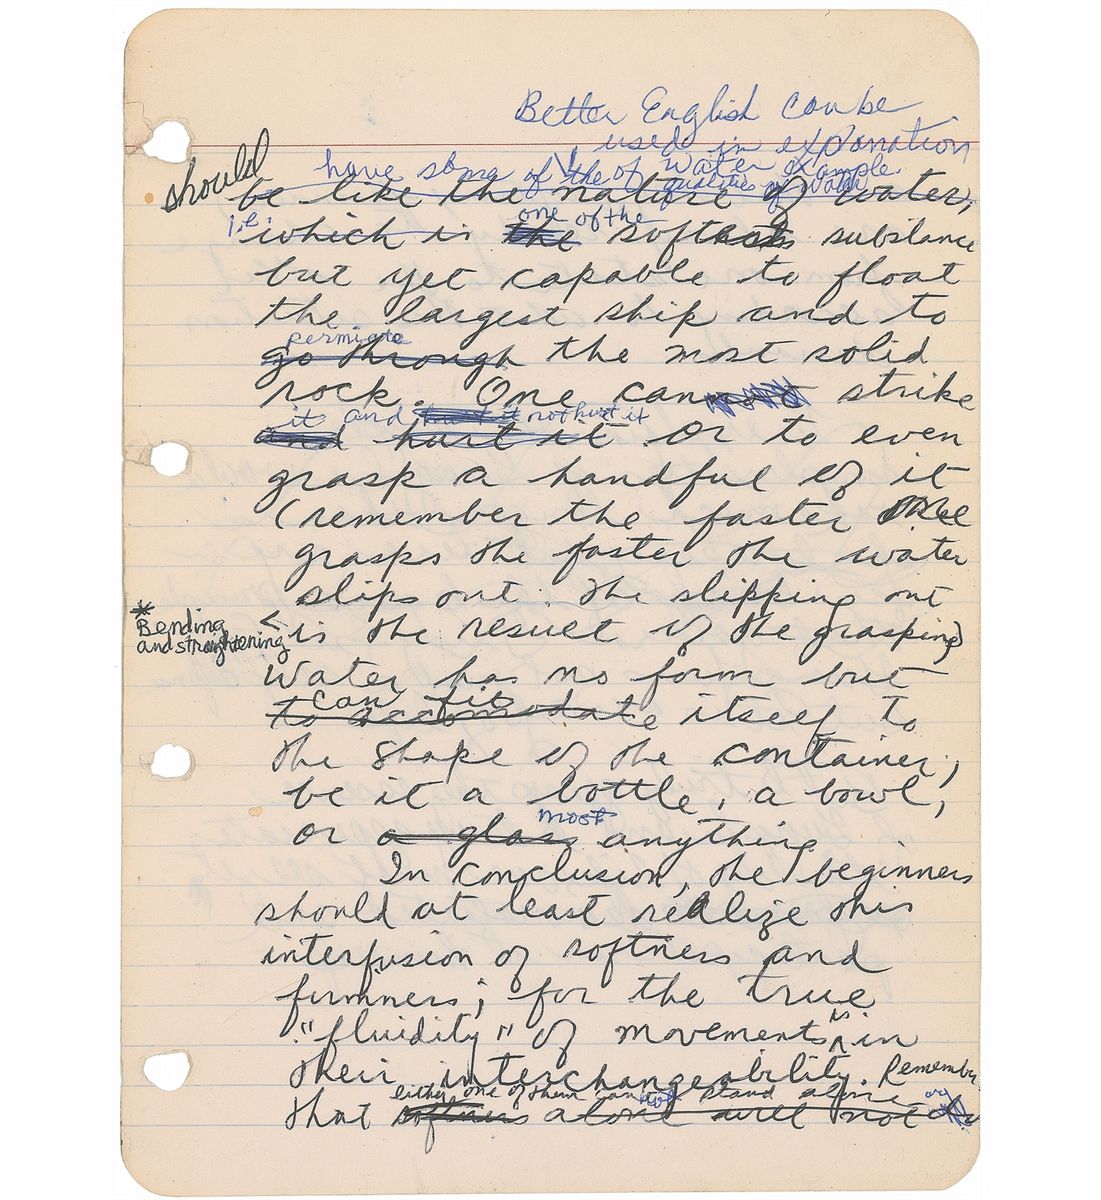 Better English can be
used in explanation
of water example.
have some of the qualities of water
should be like the nature of water,
i.e. one of the
which is the softests substance
but yet capable to float
the largest ship and to
permiate
go through the most solid
rock. One cannot strike
it and hurt it not hurt it
and hurt it or to even
grasp a handful of it
(remember the faster one
grasps the faster the water
slips out. The slipping out
* Bending
and straightening
< is the result of the grasping)
Water has no form but
can fit
to accomodate itself to
the shape of the container,
be it a bottle, a bowl,
most
or a glass anything
In conclusion, the beginners
should at least realize this
interfusion of softness and
firmness; for the true
"fluidity" of movements is in
their interchangeability. Remember
either one of them cannot stand alone or
that softness alone will not